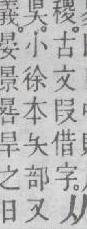 稷。古文叚借字。从
昗。小徐本夨部又
義。晏景晷旱之日